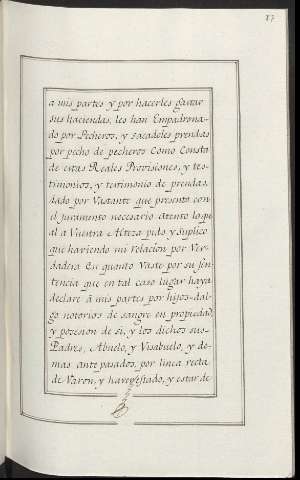 87
a mis partes y por hacerles gastar
sus haciendas, les han Empadrona-
do por Pecheros, y sacadoles prendas
por pecho de pecheros Como Consta
de estas Reales Provisiones, y tes-
timonios, y testimonio de prendas,
dado por Vastante que presento con
el juramento necesario Atento lo qu-
al a Vuestra Alteza pido y suplico
que haviendo mi relacion por Ver-
dadera En quanto Vaste por su sen-
tencia que en tal caso lugar haya
declare à mis partes por hijos-dal-
go notorios de sangre en propiedad,
y posesion de si, y los dichos sus-
Padres, Abuelo, y Visabuelo, y de-
mas antepasados, por linea recta
de Varon, y haver estado, y estar de